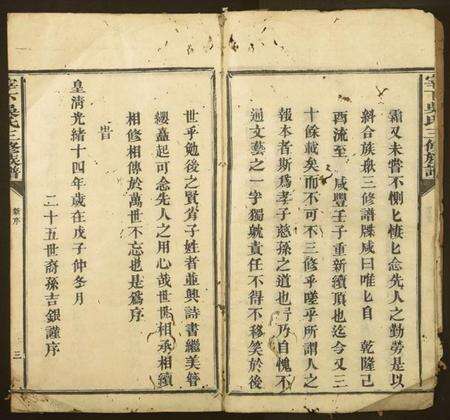 霜又未嘗不惻匕悽匕念先人之勤勞是以
斜合族眾三修譜牒咸曰唯匕自 乾隆己
酉流至 咸豐壬子重新續頂也迄今又三
十餘載矣而不可不三修乎嗟乎所謂人之
報本者斯為孝子慈孫之道也乃自愧不
通文藝之一字獨躭責任不得不移笑於後
世乎勉後之賢肖子姓者並興詩書繼美簪
纓矗起可念先人之用心哉世世相承相續
相修相傳於萬世不忘也是為序
旹
皇清光緒十四年歲在戊子仲冬月
二十五世裔孫吉銀謹序
吳氏三修族譜
新序
三
吳氏三修族譜